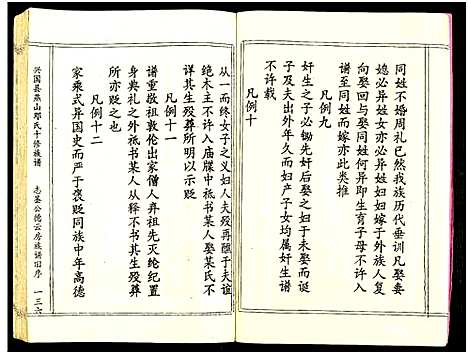 同姓不婚周礼已然我族历代垂训凡娶妻
媳必异姓女亦必异姓妇如嫁于外族人复
向娶回与娶同姓何异即生育子母不许入
谱至同姓而嫁亦此类推
凡例九
奸生之子必锄先奸后娶之妇未娶而诞
子及夫出外年久而妇产子女均属奸生谱
不许载
凡例十
从一而终女子之义妇人夫殁再醮于夫谊
绝木主不许入庙牒中祗书某人娶某氏不
详其生殁葬所明以示贬
凡例十一
谱重敬祖敦伦出家僧人弃祖先灭纶纪置
身典礼之外祗书某人从释不书其生殁葬
所亦贬之也
凡例十二
家乘式异国史而严于褒贬同族中年高德
兴国县燕山邓氏十修族谱
志圣公德云房族谱旧序
一三六